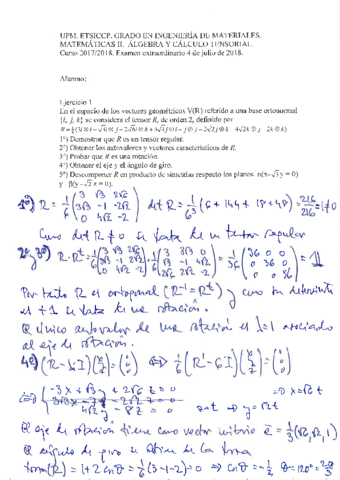 UPM. ETSICCP. GRADO EN INGENIERÍA DE MATERIALES.
MATEMÁTICAS II. ÁLGEBRA Y CÁLCULO TENSORIAL.
Curso 2017/2018. Examen extraordinario 4 de julio de 2018.
Alumno:
Ejercicio 1
En el espacio de los vectores geométricos V(R) referido a una base ortonormal
{i, j, k} se considera el tensor R, de orden 2, definido por
1º) Demostrar que R es un tensor regular.
2º) Obtener los autovalores y vectores característicos de R.
3º) Probar que R es una rotación.
4º) Obtener el eje y el ángulo de giro.
5º) Descomponer R en producto de simetrías respecto los planos α(x-√3 y = 0)
y β(y - √2 x = 0).
1º) R = 1/6 (3 √3 2√6 / 3√3 -1 -2√2 / 0 4√2 -2) det R = 1/6³ (6 + 144 + 18 + 48) = 216/216 = 1 ≠ 0
Como det R ≠ 0 se trata de un tensor regular
2º, 3º) R·Rᵗ = = 1/36 (36 0 0 / 0 36 0 / 0 0 36) = 1
Por tanto R es ortogonal (R⁻¹ = Rᵗ) y como su determinante
es +1 se trata de una rotación.
El único autovalor de una rotación es λ=1 asociado
al eje de rotación.
4º) (R - 1·I)(x y z) = (0 0 0) ⟺ 1/6 (R' - 6I)(x y z) = (0 0 0)
⟺ -3x + √3 y + 2√6 z = 0 ⇒ x = √6 t
3√3 x - 7y - 2√2 z = 0
4√2 y - 8z = 0 z = t ⇒ y = √2 t
El eje de rotación tiene como vector unitario ē = 1/3 (√6, √2, 1)
El ángulo de giro se obtiene de la traza
traza(R) = 1 + 2cos θ = 1/6 (3-1-2) = 0 ⇒ cos θ = -1/2 θ = 120° = 2π/3